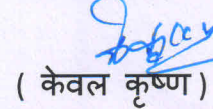 ( केवल कृष्ण )